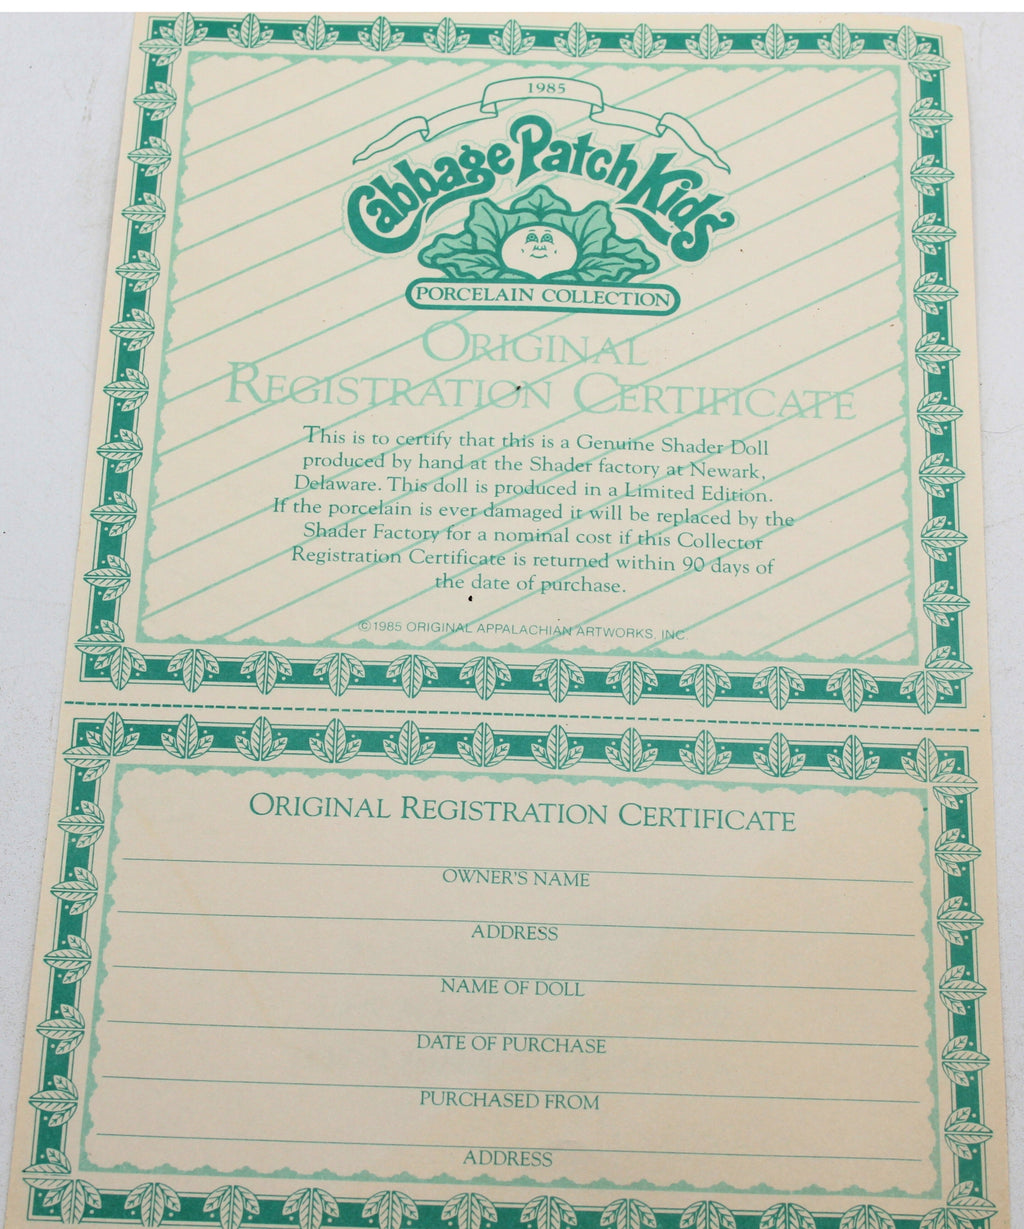 1985
Cabbage Patch Kids
PORCELAIN COLLECTION
ORIGINAL
REGISTRATION CERTIFICATE
This is to certify that this is a Genuine Shader Doll
produced by hand at the Shader factory at Newark,
Delaware. This doll is produced in a Limited Edition.
If the porcelain is ever damaged it will be replaced by the
Shader Factory for a nominal cost if this Collector
Registration Certificate is returned within 90 days of
the date of purchase.
©1985 ORIGINAL APPALACHIAN ARTWORKS, INC.
ORIGINAL REGISTRATION CERTIFICATE
OWNER'S NAME
ADDRESS
NAME OF DOLL
DATE OF PURCHASE
PURCHASED FROM
ADDRESS